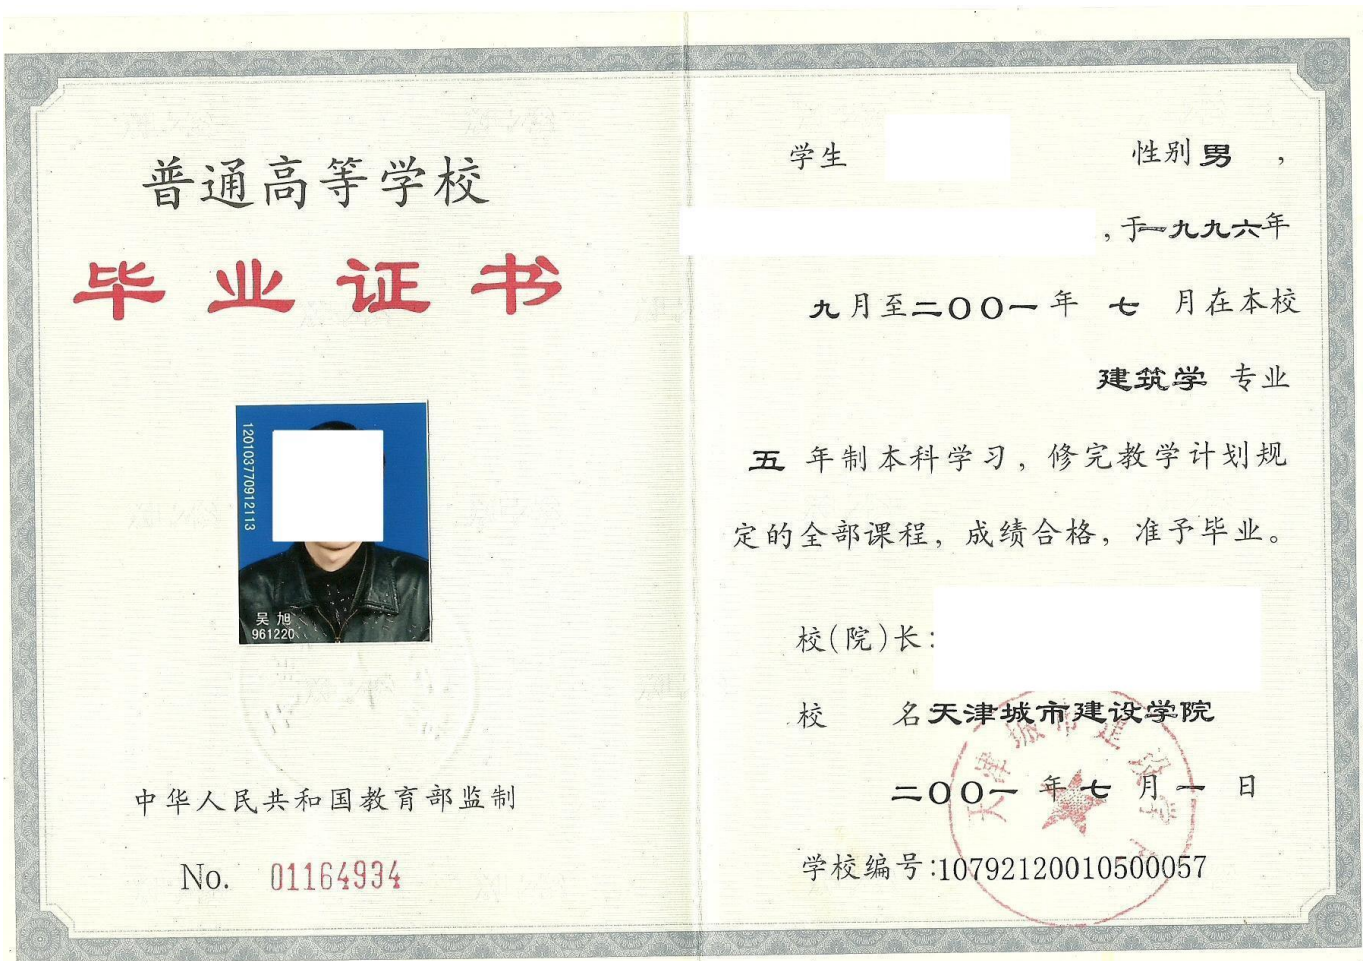 普通高等学校
毕业证书
120103770912113
吴旭
961220
中华人民共和国教育部监制
No. 01164934
学生 性别男，
，于一九九六年
九月至二〇〇一年 七 月在本校
建筑学 专业
五 年制本科学习，修完教学计划规
定的全部课程，成绩合格，准予毕业。
校(院)长：
校 名天津城市建设学院
二〇〇一 年七月一日
学校编号:10792120010500057
天津城市建设学院